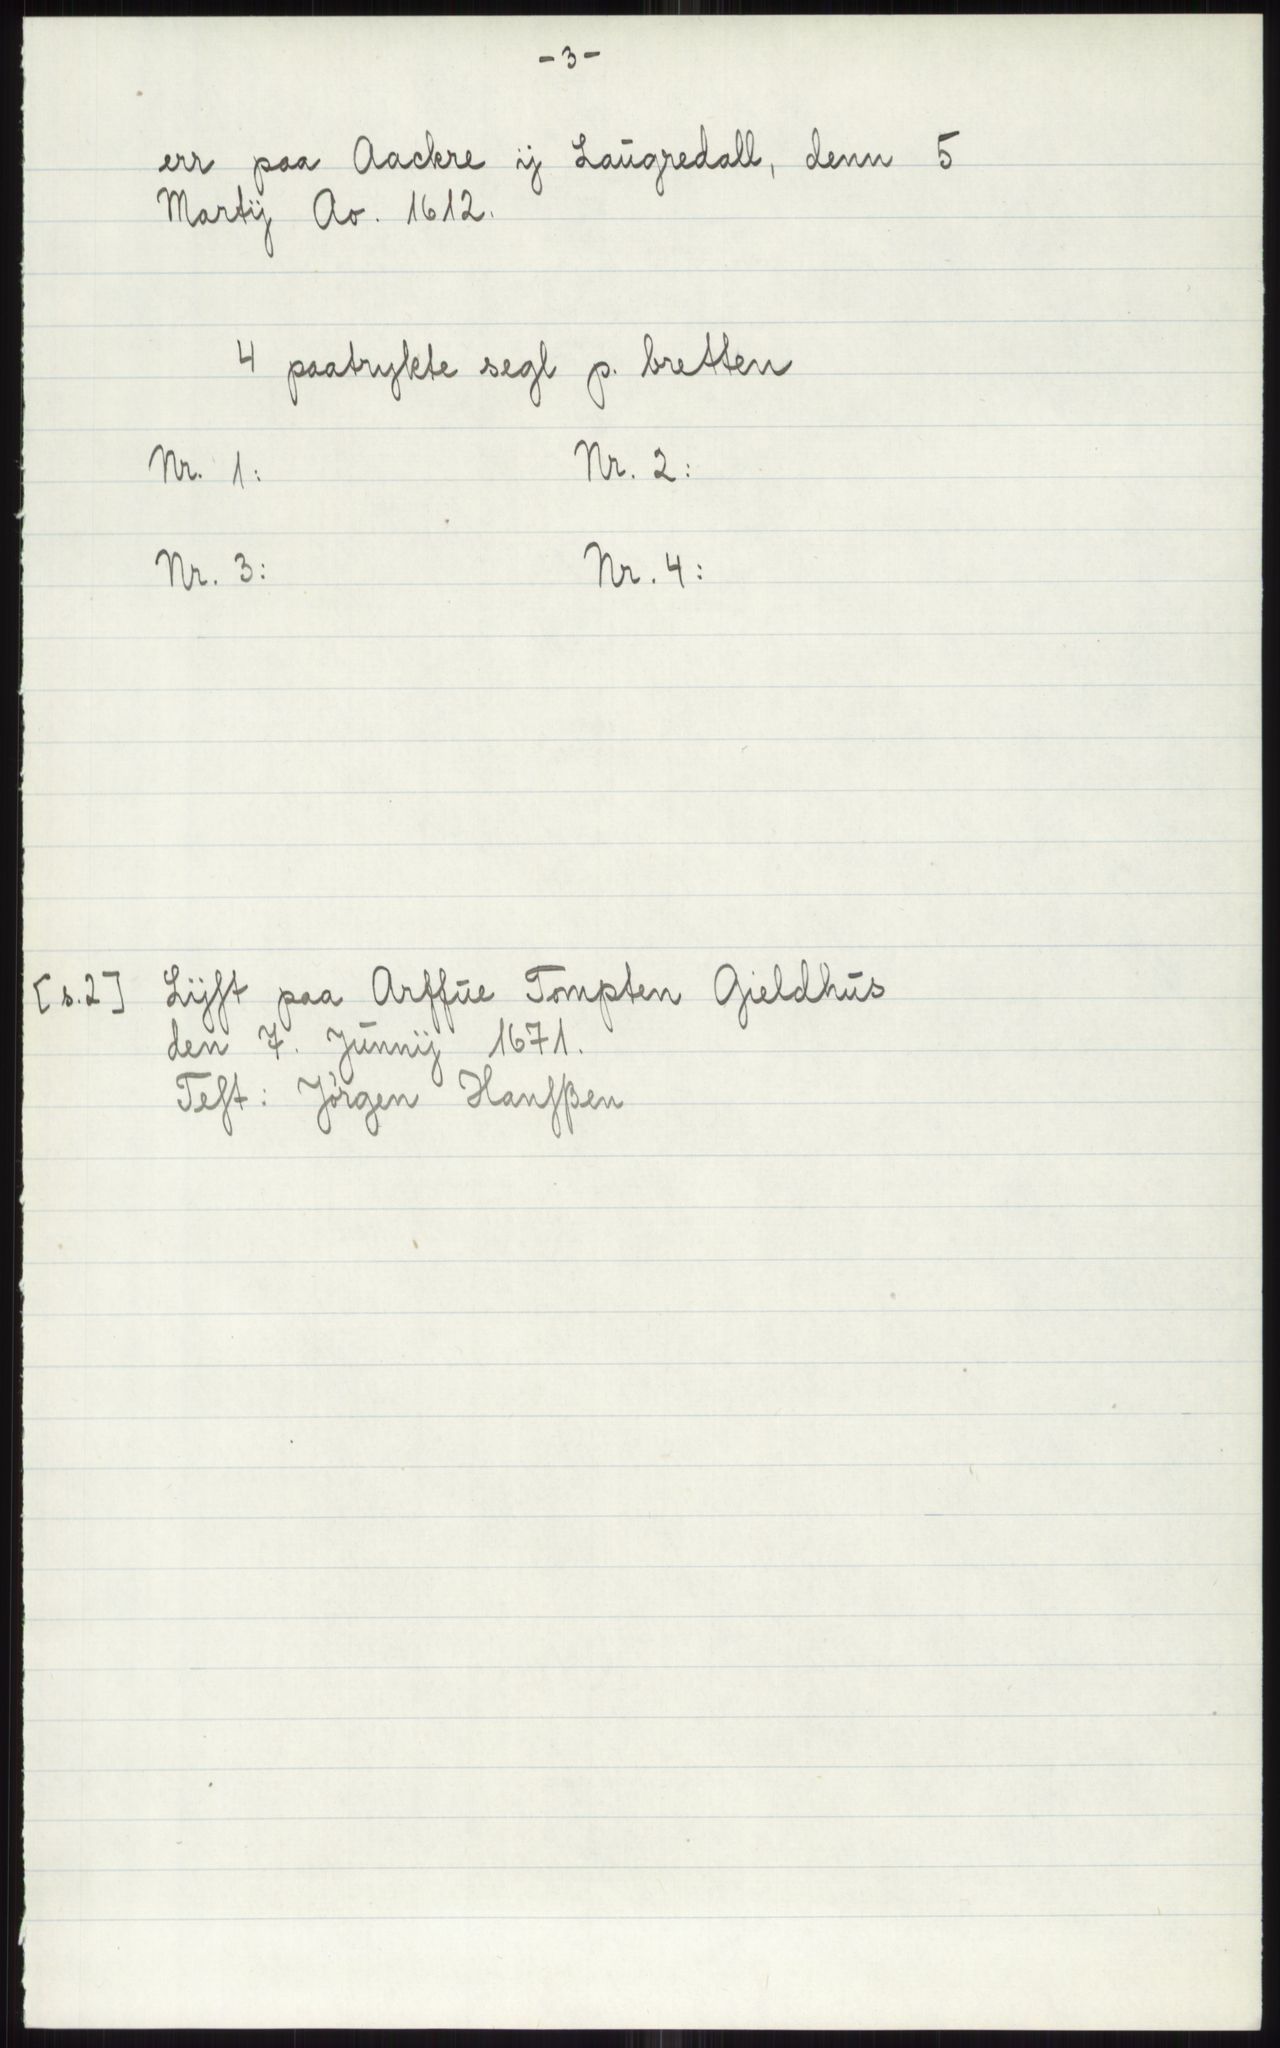 - 3 -
err paa Aackre ij Laugredall, denn 5
Martij Ao. 1612.
4 paatrykte segl p. bretten
Nr. 1: Nr. 2:
Nr. 3: Nr. 4:
[s.2] Lijſt paa Arffue Tompten Gieldhus
den 7. Junnij 1671.
Teſt: Jörgen Hanſßen